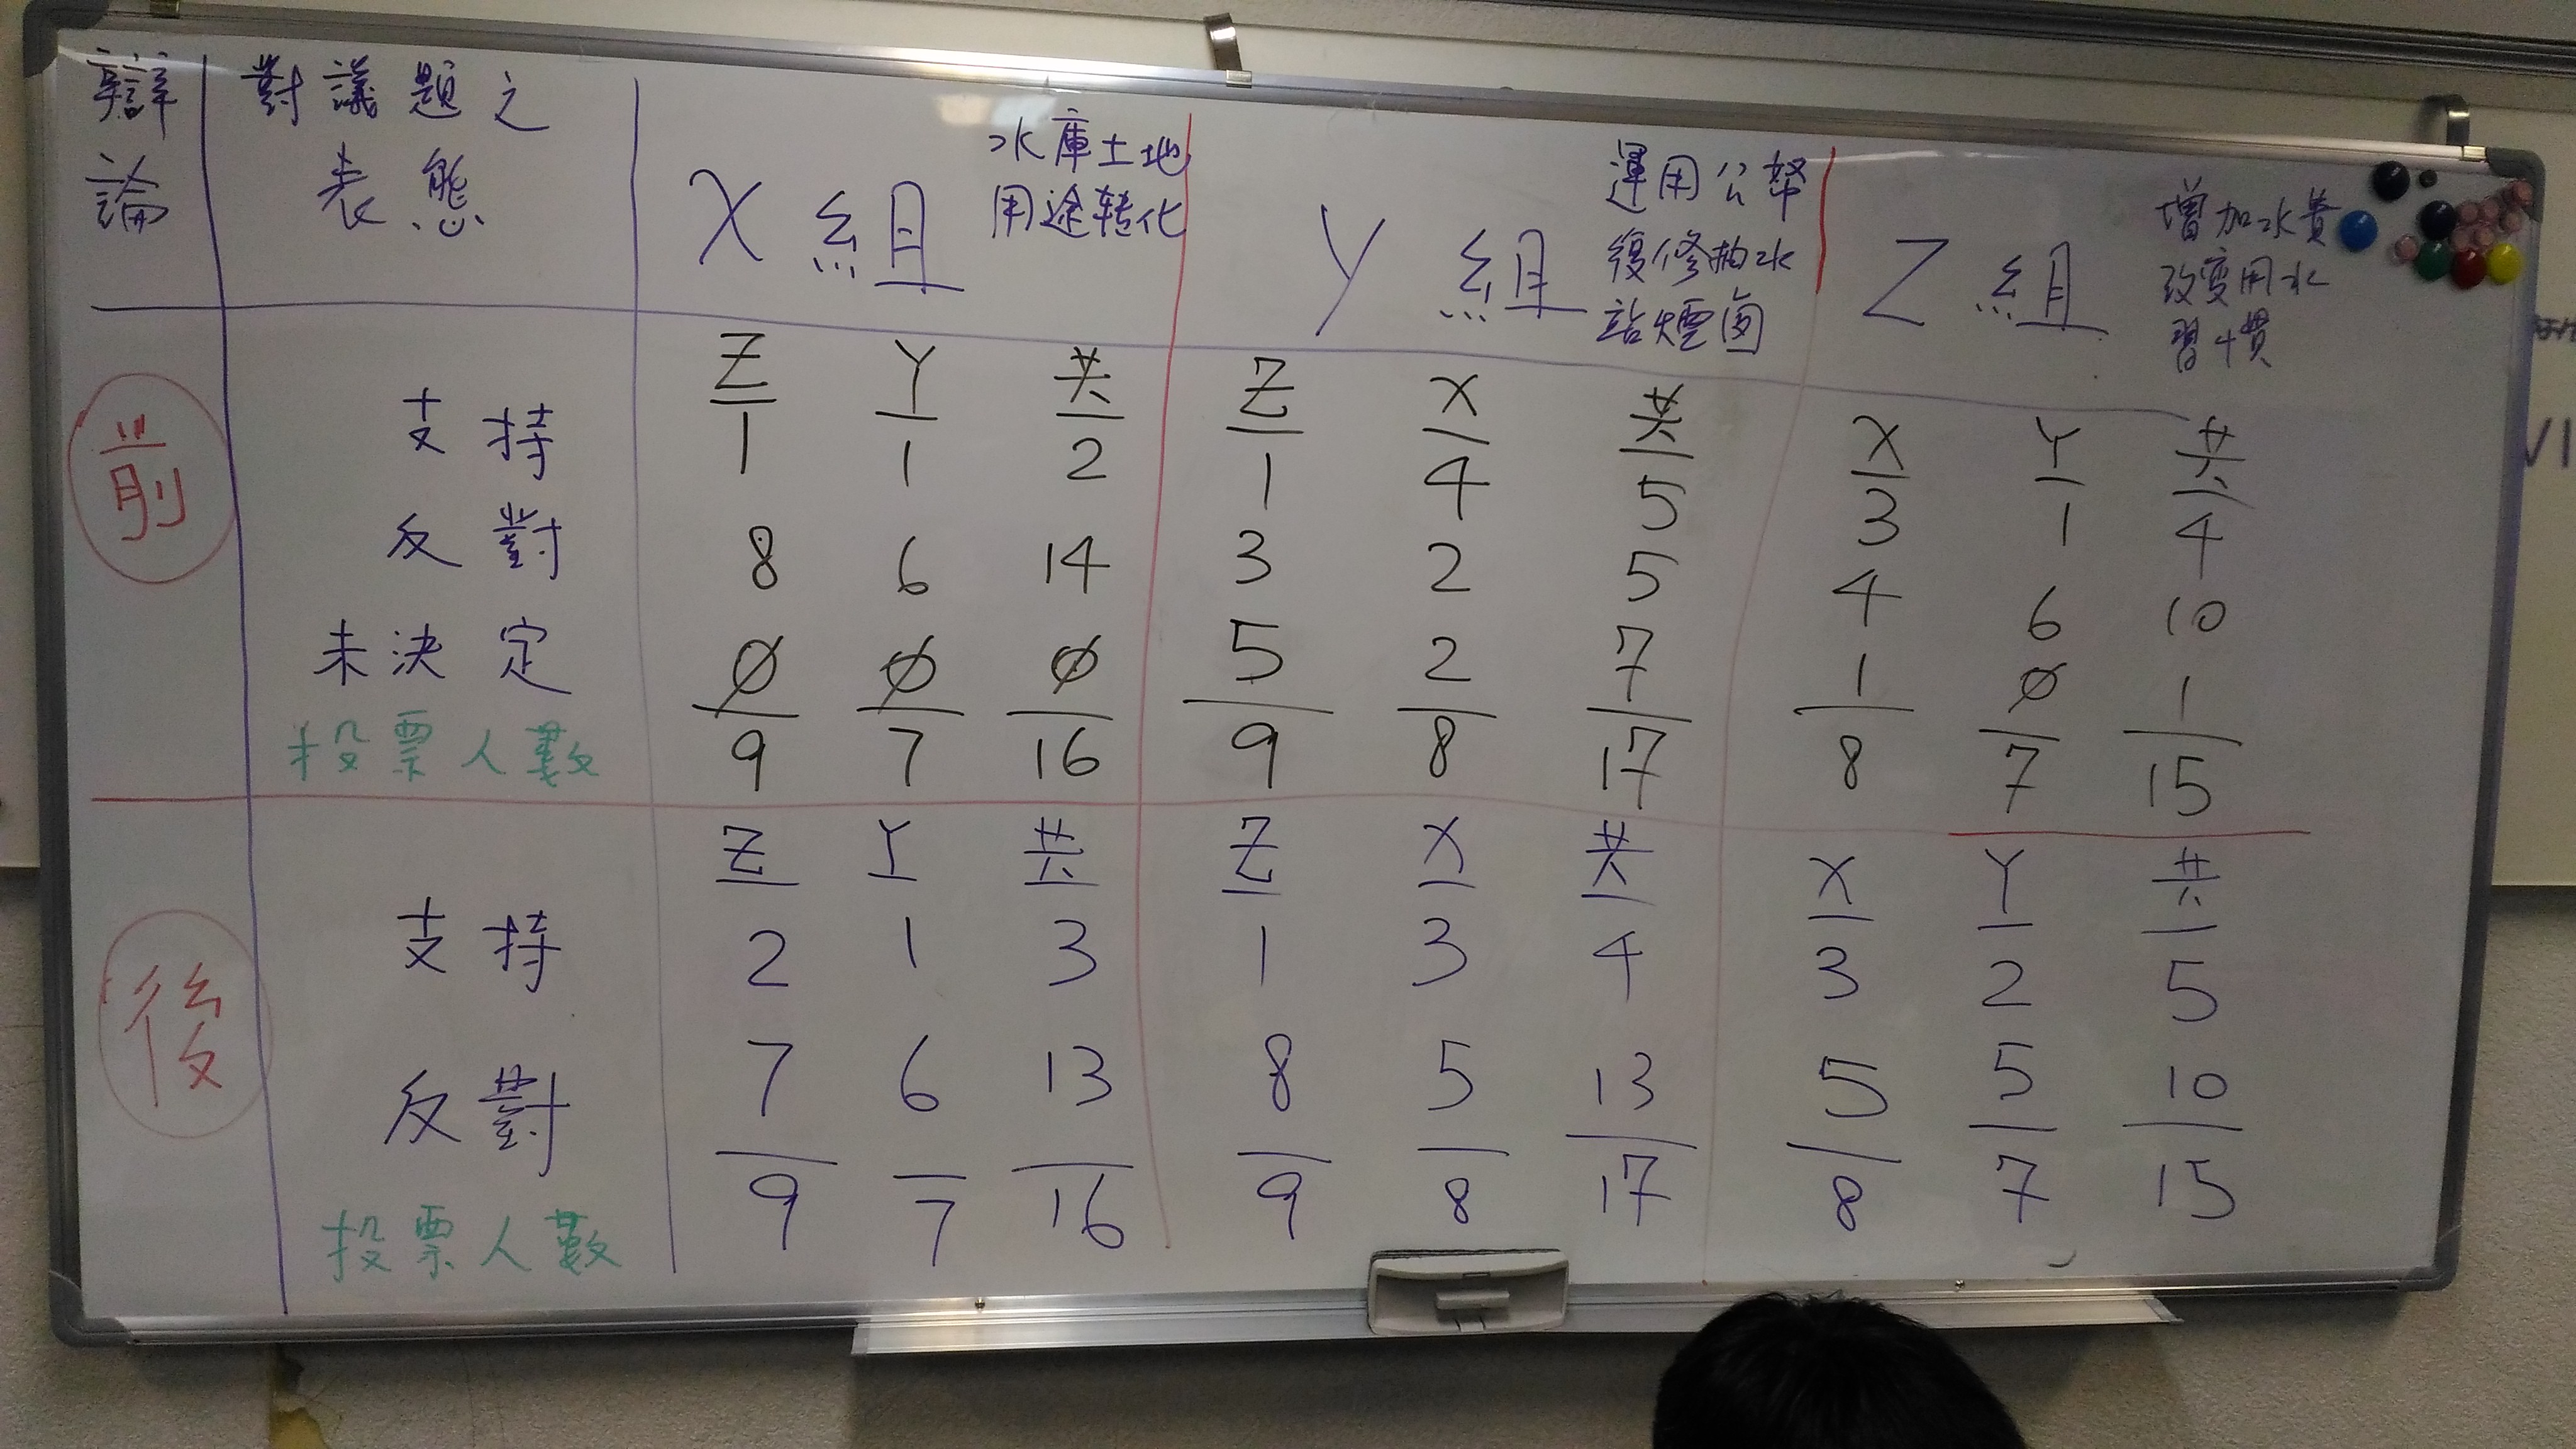 辯論
對議題之
表態
X組
水庫土地
用途转化
Y組
運用公帑
復修抽水
站煙囱
Z組
增加水費
改变用水
習慣
前
Z Y 共 Z X 共 X Y 共
支持 1 1 2 1 4 5 3 1 4
反對 8 6 14 3 2 5 4 6 10
未決定 ∅ ∅ ∅ 5 2 7 1 ∅ 1
投票人數 9 7 16 9 8 17 8 7 15
後
Z Y 共 Z X 共 X Y 共
支持 2 1 3 1 3 4 3 2 5
反對 7 6 13 8 5 13 5 5 10
投票人數 9 7 16 9 8 17 8 7 15